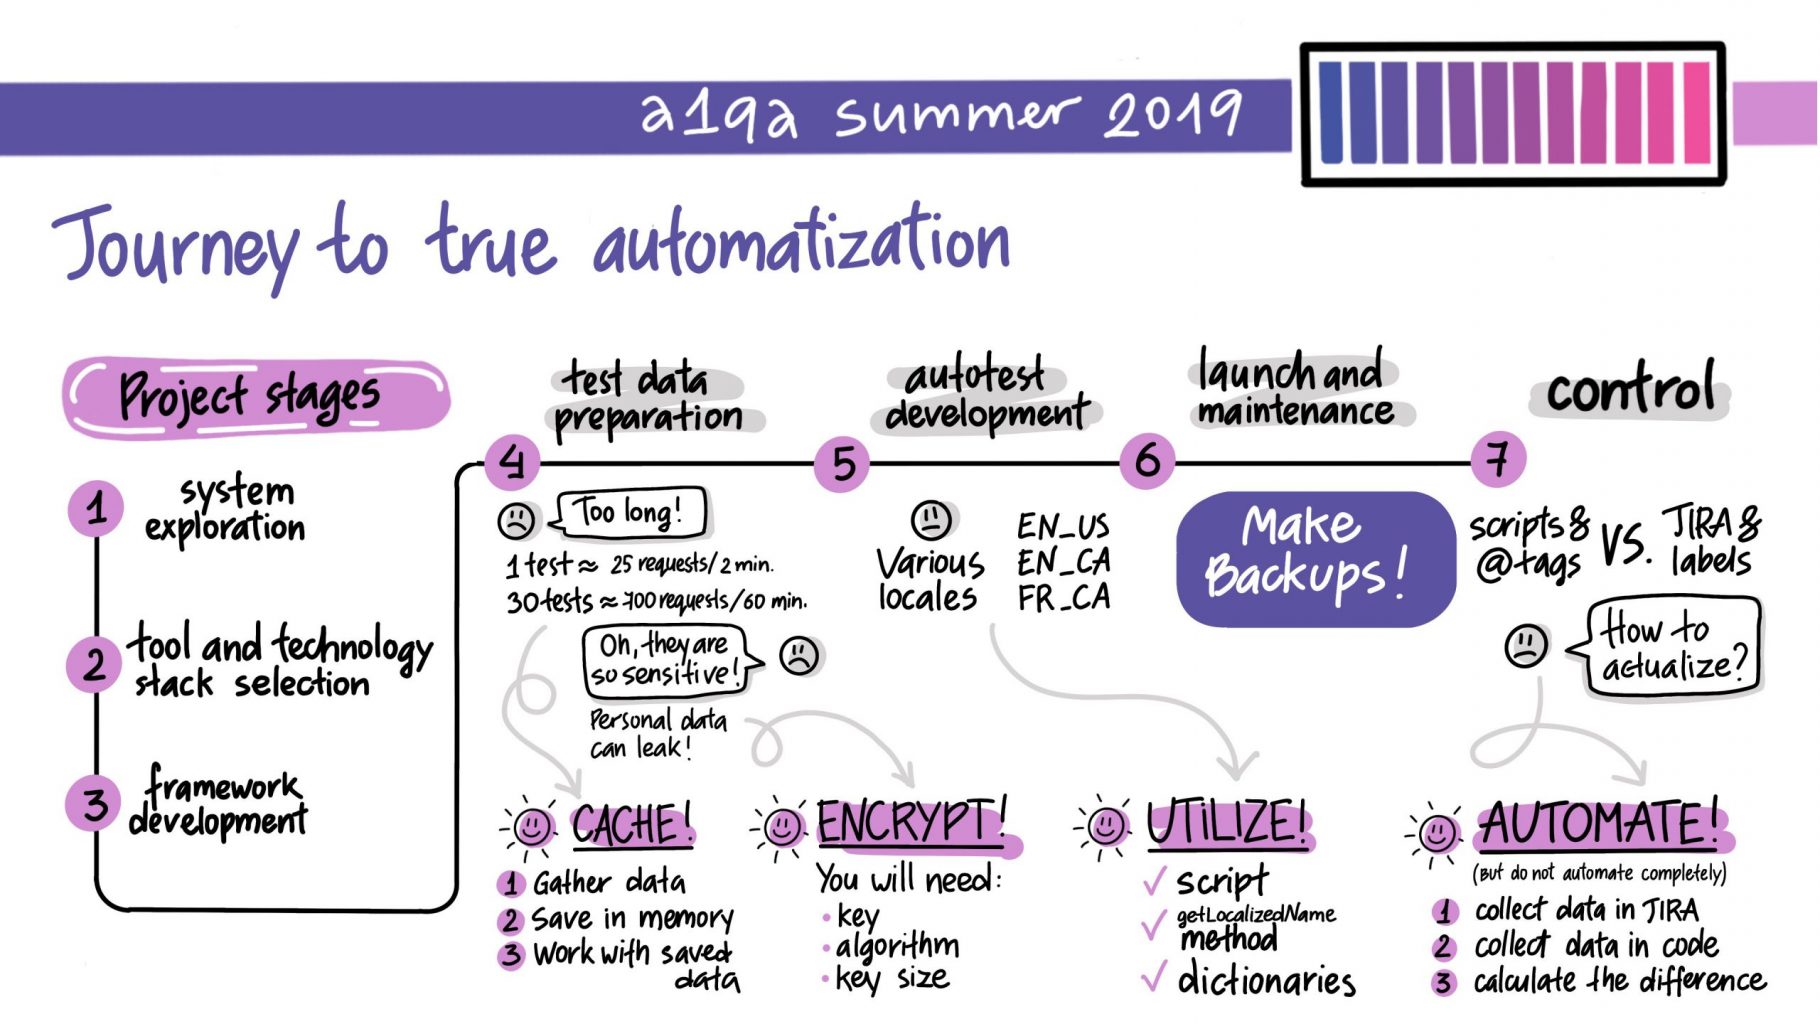 a1qa summer 2019
Journey to true automatization
Project stages
1
system
exploration
2
tool and technology
stack selection
3
framework
development
test data
preparation
4
Too long!
1 test ≈ 25 requests/2 min.
30 tests ≈ 700 requests/60 min.
Oh, they are
so sensitive!
Personal data
can leak!
CACHE!
1 Gather data
2 Save in memory
3 Work with saved
data
ENCRYPT!
You will need:
• key
• algorithm
• key size
autotest
development
5
Various
locales
EN_US
EN_CA
FR_CA
UTILIZE!
✓ script
✓ getLocalizedName
method
✓ dictionaries
launch and
maintenance
6
Make
Backups!
control
7
scripts &
@tags
VS.
JIRA &
labels
How to
actualize?
AUTOMATE!
(But do not automate completely)
1 collect data in JIRA
2 collect data in code
3 calculate the difference